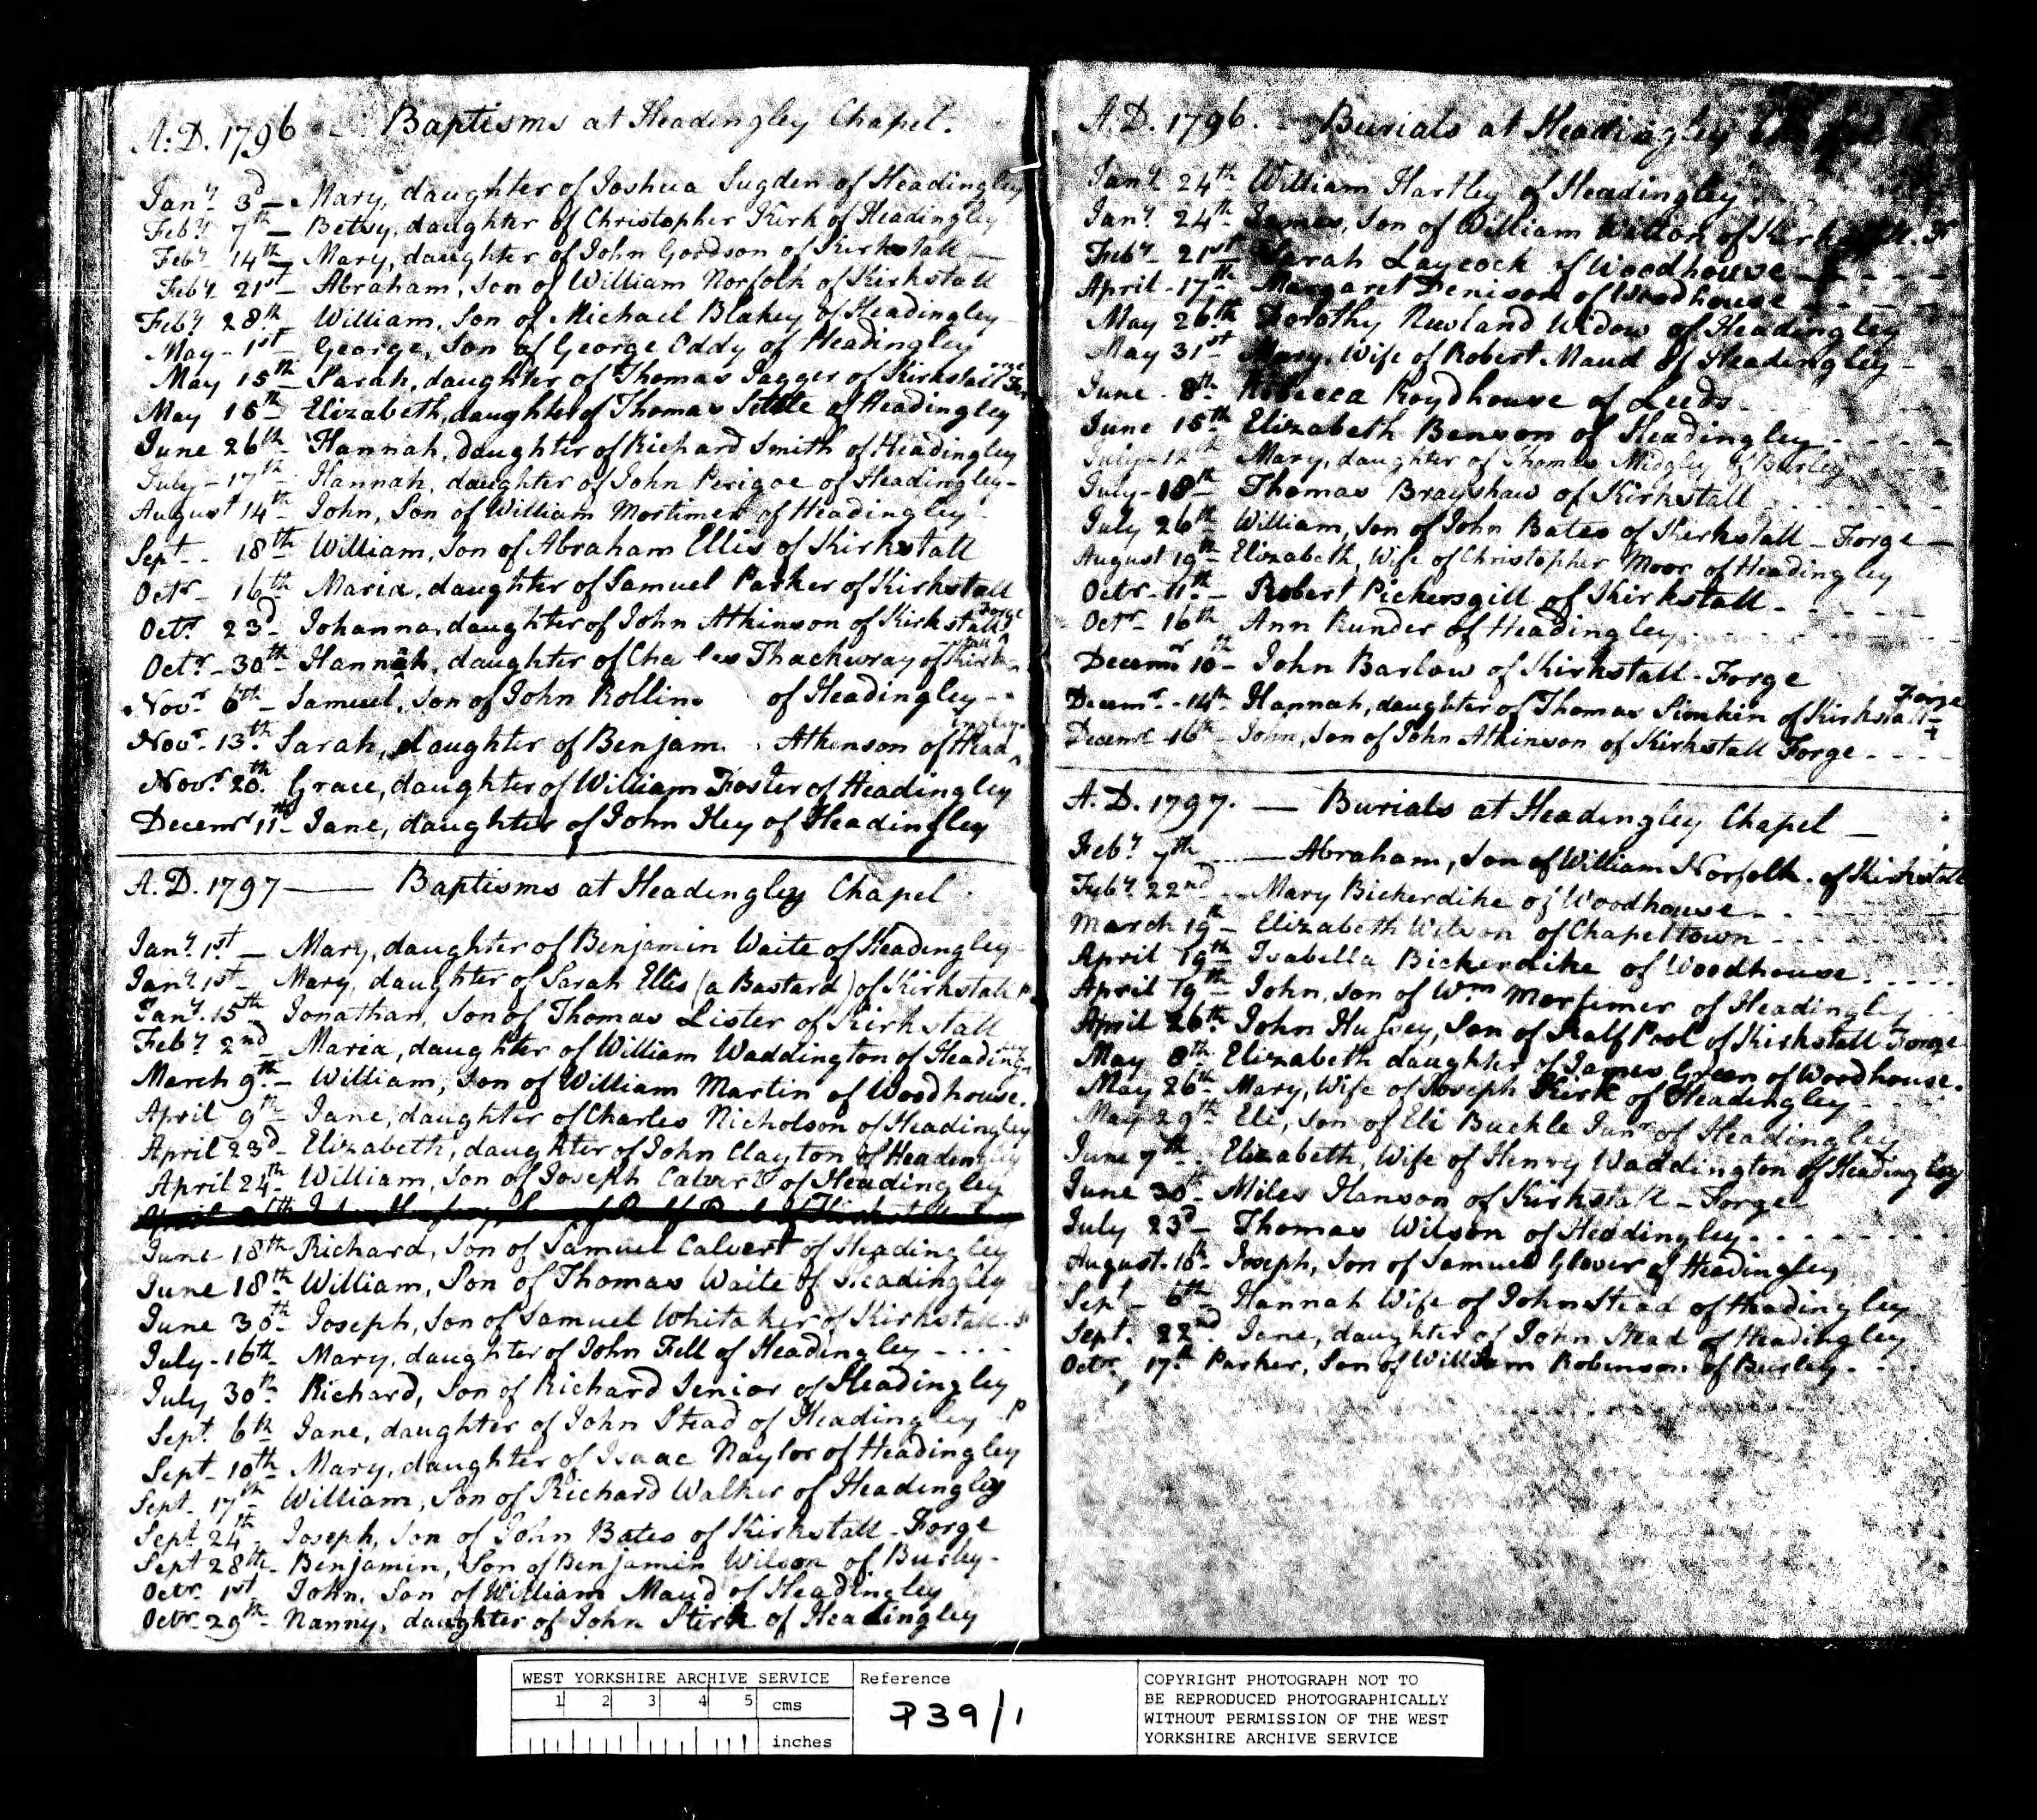 A.D. 1796 - Baptisms at Headingley Chapel.
Jany 3d - Mary, daughter of Joshua Sugden of Headingley
Feby 7th - Betsy, daughter of Christopher Kirk of Headingley
Feby 14th - Mary, daughter of John Goodson of Kirkstall -
Feby 21st - Abraham, Son of William Norfolk of Kirkstall
Feby 28th William, Son of Michael Blakey of Headingley
May - 1st - George, Son of George Oddy of Headingley
May 15th - Sarah, daughter of Thomas Jagger of Kirkstall Forge
May 15th Elizabeth, daughter of Thomas Settle of Headingley
June 26th - Hannah, daughter of Richard Smith of Headingley
July - 17th - Hannah, daughter of John Perigoe of Headingley -
August 14th - John, Son of William Mortimer of Headingley
Sept - 18th William, Son of Abraham Ellis of Kirkstall
Octr - 16th Maria, daughter of Samuel Parker of Kirkstall
Octr 23d Johanna, daughter of John Atkinson of Kirkstall Forge
Octr - 30th - Hannah, daughter of Cha les Thackwray of Kirk
Novr 6th - Samuel, Son of John Rollin of Headingley -
Novr - 13th Sarah, daughter of Benjam Atkinson of Headingley
Novr 20th Grace, daughter of William Foster of Headingley
Decemr 11th - Jane, daughter of John Hey of Headingley
A.D. 1797 - Baptisms at Headingley Chapel.
Jany 1st - Mary, daughter of Benjamin Waite of Headingley -
Jany 1st - Mary, daughter of Sarah Ellis (a Bastard) of Kirkstall P
Jany 15th Jonathan, Son of Thomas Lister of Kirkstall
Feby 2nd - Maria, daughter of William Waddington of Heading
March 9th - William, Son of William Martin of Woodhouse.
April 9th - Jane, daughter of Charles Nicholson of Headingley
April 23d - Elizabeth, daughter of John Clayton of Headingley
April 24th - William, Son of Joseph Calvert of Headingley
June 18th Richard, Son of Samuel Calvert of Headingley
June 18th William, Son of Thomas Waite of Headingley
June 30th Joseph, Son of Samuel Whitaker of Kirkstall
July - 16th - Mary, daughter of John Fell of Headingley - - -
July 30th - Richard, Son of Richard Senior of Headingley
Sept. 6th Jane, daughter of John Stead of Headingley P
Sept - 10th - Mary, daughter of Isaac Naylor of Headingley
Sept - 17th William, Son of Richard Walker of Headingley
Sept 24th - Joseph, Son of John Bates of Kirkstall - Forge
Sept 28th - Benjamin, Son of Benjamin Wilson of Burley -
Octr 1st John, Son of William Maud of Headingley
Octr 29th - Nanny, daughter of John Stirk of Headingley
A.D. 1796. - Burials at Headingley
Jany 24th William Hartley of Headingley
Jany 24th James, Son of William Walton of Kirkstall
Feby - 21st Sarah Laycock of Woodhouse - - - -
April - 17th Margaret Denison of Woodhouse - - -
May 26th Dorothy Newland Widow of Headingley
May 31st Mary, Wife of Robert Maud of Headingley -
June - 8th Rebecca Roydhouse of Leeds -
June 15th Elizabeth Benson of Headingley - - - -
July - 12th Mary, daughter of Thomas Midgley of Burley
July - 18th Thomas Brayshaw of Kirkstall
July 26th William, Son of John Bates of Kirkstall - Forge -
August 19th - Elizabeth, Wife of Christopher Moor of Headingley
Octr - 11th - Robert Pickersgill of Kirkstall - - - -
Octr - 16th Ann Runder of Headingley - - - -
Decemr 10th - John Barlow of Kirkstall - Forge
Decemr - 14th Hannah, daughter of Thomas Simkin of Kirkstall - Forge
Decemr 16th - John, Son of John Atkinson of Kirkstall Forge - - - -
A.D. 1797. - Burials at Headingley Chapel -
Feby 7th - Abraham, Son of William Norfolk of Kirkstall
Feby 22nd - Mary Bickerdike of Woodhouse - - -
March 19th - Elizabeth Wilson of Chapeltown - - - -
April 19th - Isabella Bickerdike of Woodhouse - - -
April 19th - John, Son of Wm Mortimer of Headingley
April 26th John Hussey, Son of Ralf Pool of Kirkstall Forge
May 8th Elizabeth daughter of James Green of Woodhouse.
May 26th Mary, Wife of Joseph Kirk of Headingley -
May 29th Eli, Son of Eli Buckle Junr of Headingley
June 7th - Elizabeth, Wife of Henry Waddington of Headingley
June 30th - Miles Hanson of Kirkstall - Forge
July 23d - Thomas Wilson of Headingley - - - -
August 18th Joseph, Son of Samuel Glover of Headingley
Sept - 6th Hannah Wife of John Stead of Headingley
Sept. 22nd. Jane, daughter of John Stead of Headingley
Octr, 17th Parker, Son of William Robinson of Burley - -
WEST YORKSHIRE ARCHIVE SERVICE
1 2 3 4 5 cms
inches
Reference
P39/1
COPYRIGHT PHOTOGRAPH NOT TO
BE REPRODUCED PHOTOGRAPHICALLY
WITHOUT PERMISSION OF THE WEST
YORKSHIRE ARCHIVE SERVICE